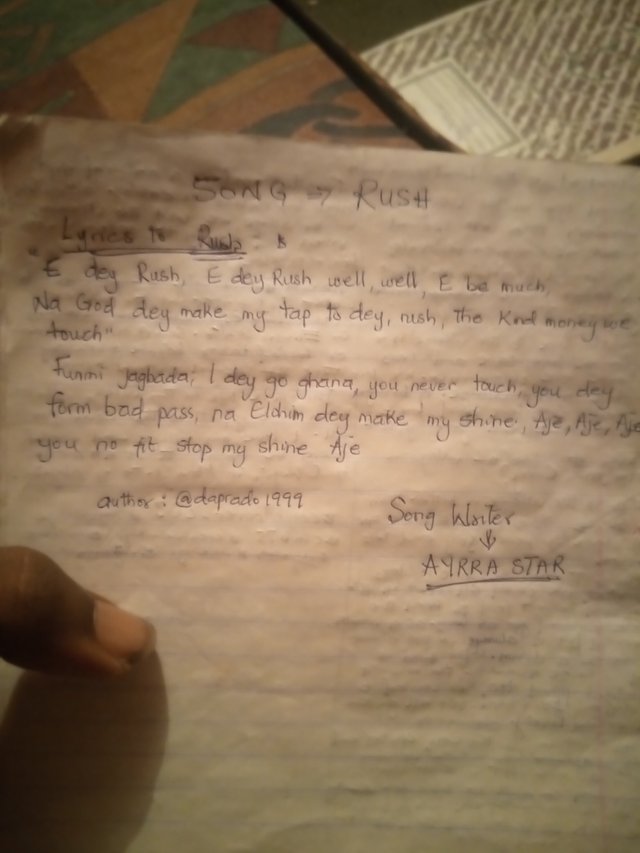 SONG → RUSH
Lyrics to Rush:
"E dey Rush, E dey Rush well, well, E be much,
Na God dey make my tap to dey, rush, The Kind money we
touch"
Funmi jagbada, I dey go ghana, you never touch, you dey
form bad pass, na Elohim dey make my shine, Aje, Aje, Aje
you no fit stop my shine Aje
author: @daprado1999
Song Writer
↓
AYRRA STAR